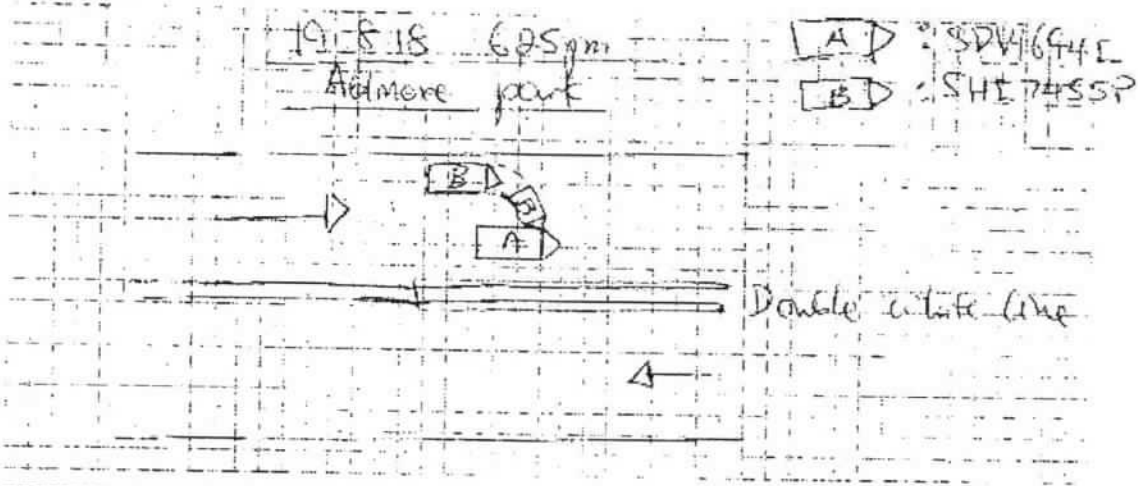 19.8.18 625pm
Admore park
A : SDV1694E
B : SHE7455P
B
B
A
Double white line